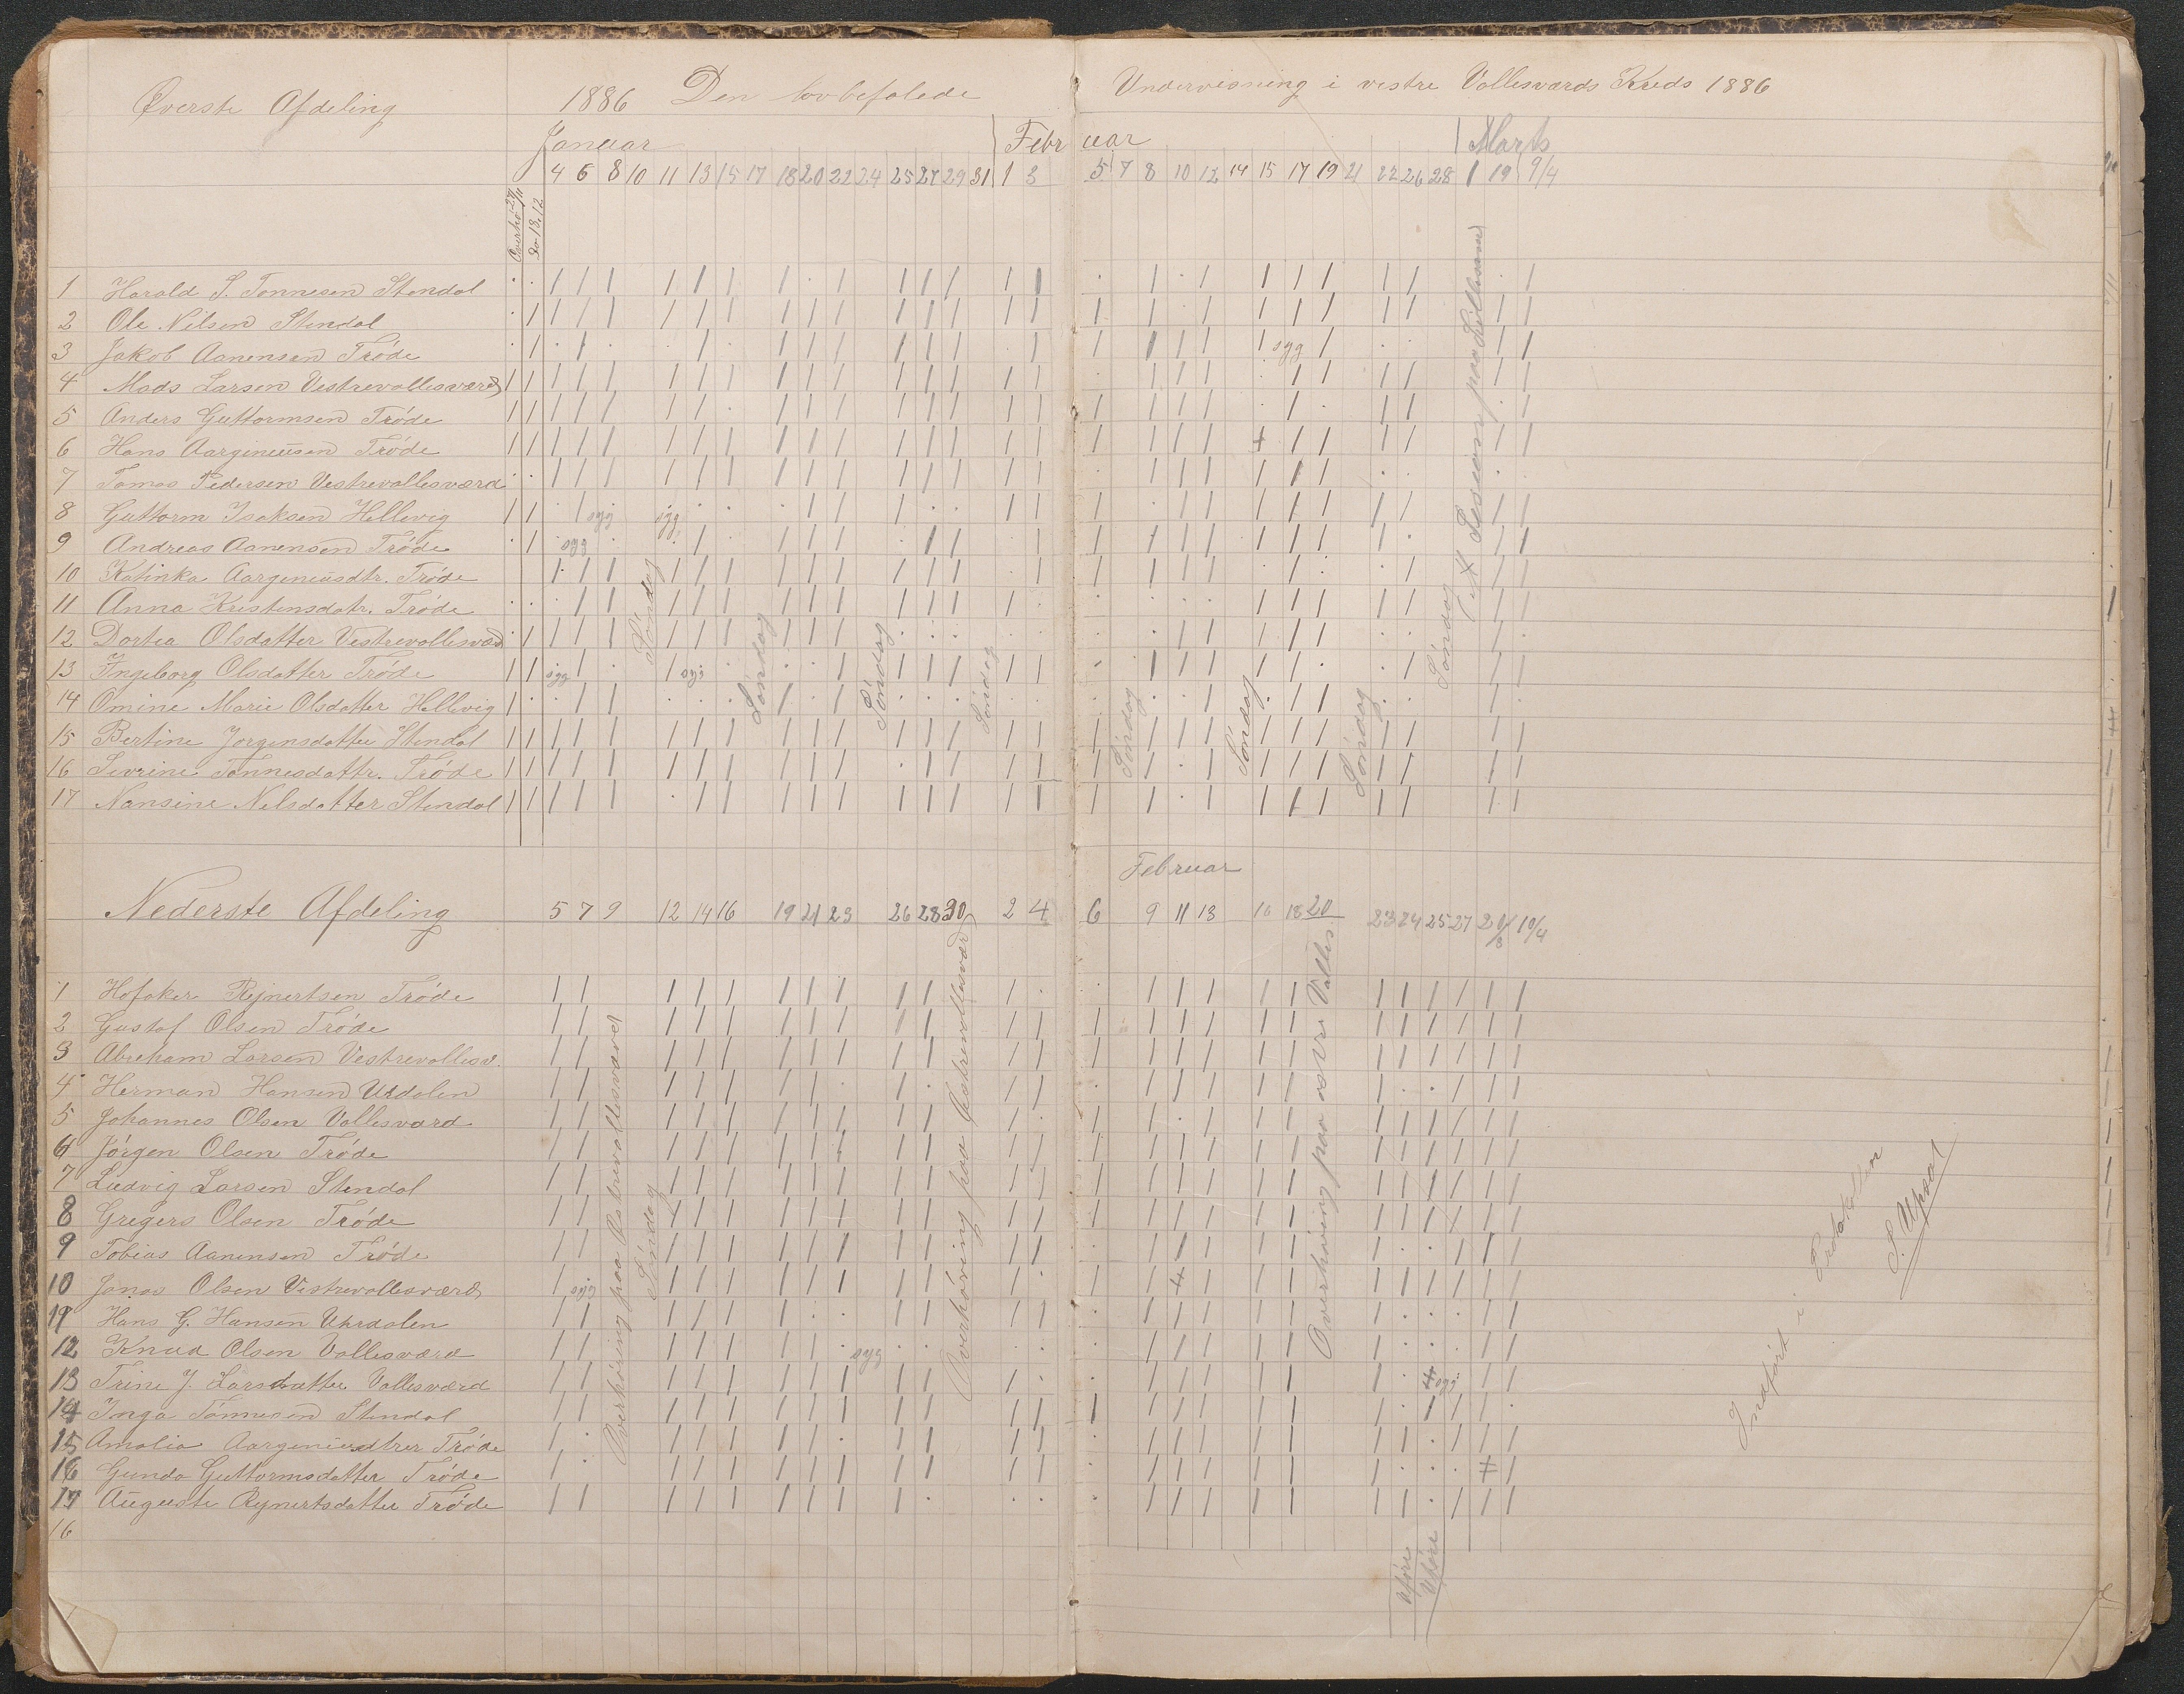 Øverste Afdeling 1886 Den lovbefalede Undervisning i vestre Vollesværds Kreds 1886
Januar Februar Marts
4 6 8 10 11 13 15 17 18 20 22 24 25 27 29 31 1 3 5 7 8 10 12 14 15 17 19 21 22 26 28 1 19 9/4
1 Harald S. Tønnesen Stendal
2 Ole Nilsen Stendal
3 Jakob Aanensen Trøde syg
4 Mads Larsen Vestrevollesværd
5 Anders Guttormsen Trøde
6 Hans Aargineusen Trøde
7 Tomas Pedersen Vestrevollesværd
8 Guttorm Isaksen Hellevig syg syg
9 Andreas Aanensen Trøde syg
10 Katinka Aargineusdtr. Trøde
11 Anna Kristensdatr. Trøde
12 Dortea Olsdatter Vestrevollesvæd
13 Ingeborg Olsdatter Trøde syg syg
14 Omine Marie Olsdatter Hellevig
15 Bertine Jorgensdatter Stendal
16 Sevrine Tønnesdattr. Trøde
17 Nansine Nilsdatter Stendal
Søndag
Søndag
Søndag
Søndag
Søndag
Søndag
Søndag
Søndag
Februar
Nederste Afdeling 5 7 9 12 14 16 19 21 23 26 28 30 2 4 6 9 11 13 16 18 20 23 24 25 27 10/4
1 Hofaker Rejnertsen Trøde
2 Gustaf Olsen Trøde
3 Abreham Larsen Vestrevollesv.
4 Herman Hansen Urdalen
5 Johannes Olsen Vollesværd
6 Jørgen Olsen Trøde
7 Ludvig Larsen Stendal
8 Gregers Olsen Trøde
9 Tobias Aanensen Trøde
10 Jonas Olsen Vestrevollesværd syg
11 Hans G. Hansen Uhrdalen
12 Knud Olsen Vollesværd syg
13 Trine J. Larsdatter Vollesværd syg
14 Inga Tønnesen Stendal
15 Amalia Trøde
16 Gunda Guttormsdatter Trøde
17 Auguste Rejnertsdatter Trøde
16
Overhøring paa Østrevollesværd
Søndag
Overhøring paa Vestrevollesværd
Overhøring paa østre Valles.
Uføre
Uføre
Indført i Protokollen
S. Upsal